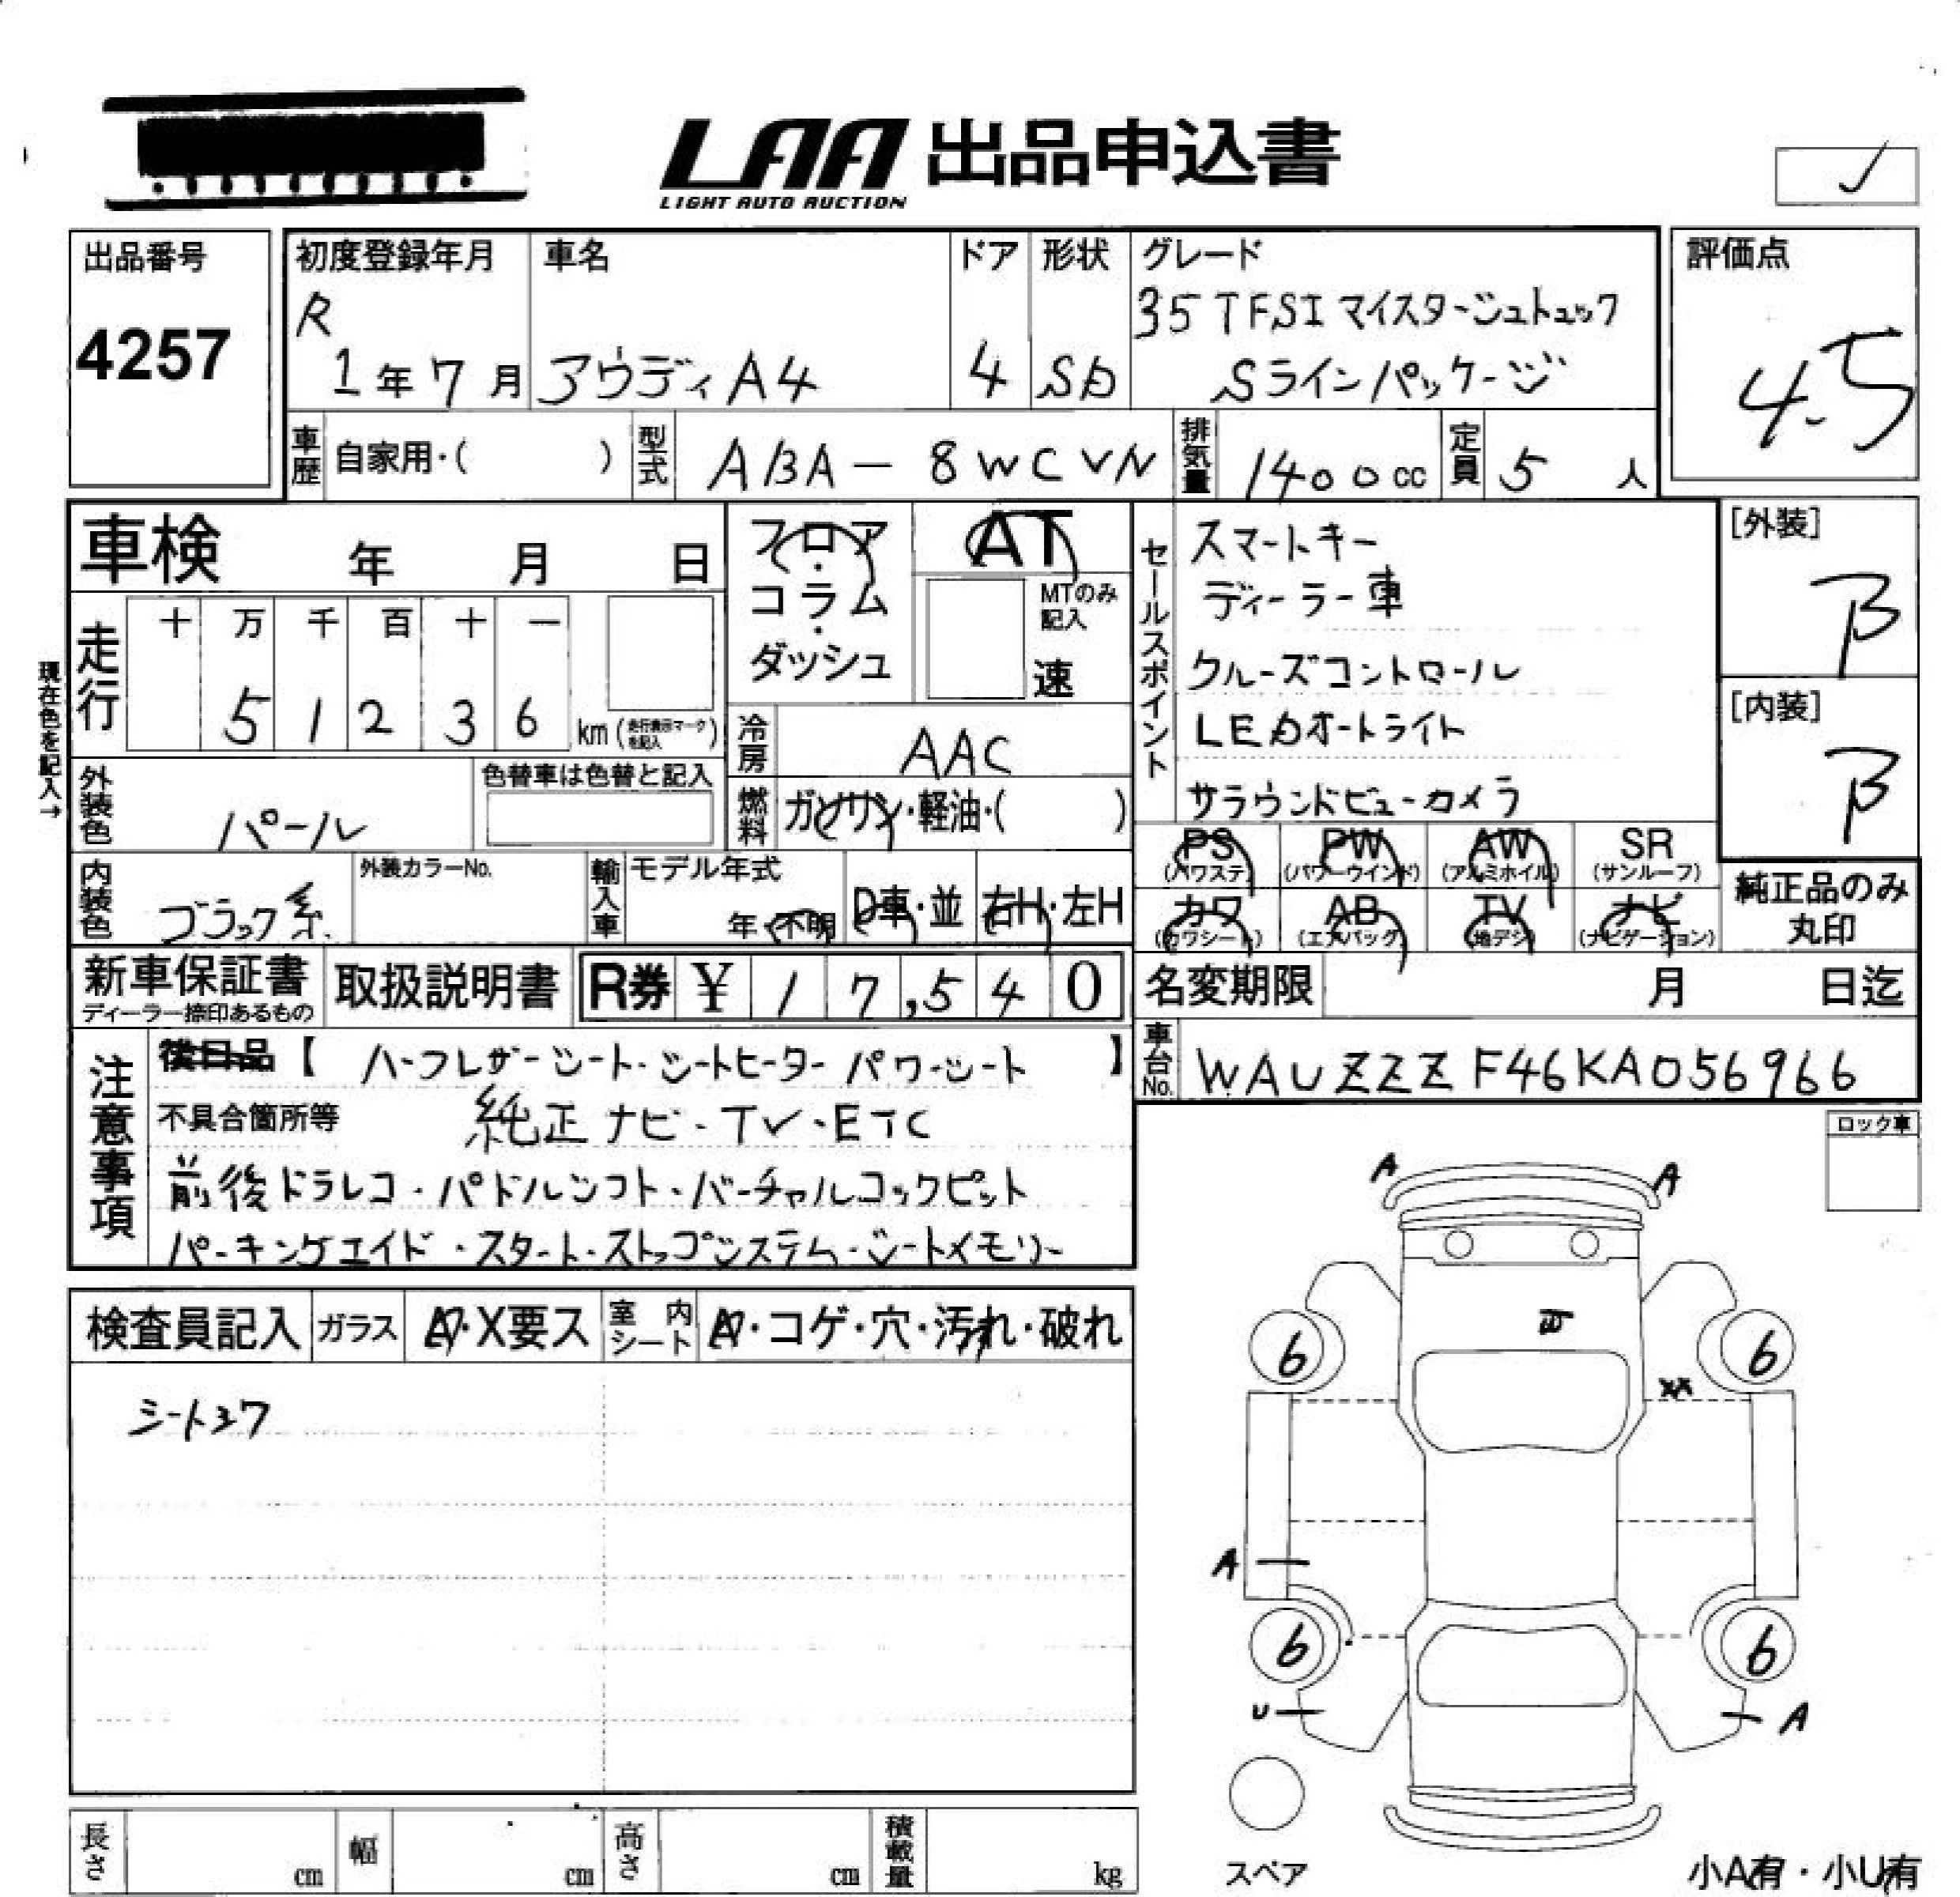 LAA 出品申込書
LIGHT AUTO AUCTION
出品番号
4257
初度登録年月
R
1年7月
車名
アウディA4
ドア
4
形状
SD
グレード
35TFSIマイスターシュトュック
Sラインパッケージ
評価点
4.5
車歴 自家用・( )
型式 ABA-8WCVN
排気量 1400cc
定員 5人
車検 年 月 日
走行
十 万 千 百 十 一
5 1 2 3 6 km(走行表示マークを記入)
現在色を記入→
外装色 パール
色替車は色替と記入
内装色 ブラック系
外装カラーNo.
フロア・コラム・ダッシュ
AT
MTのみ記入
速
冷房 AAC
燃料 ガソリン・軽油・( )
輸入車
モデル年式
年・不明
D車・並
右H・左H
セールスポイント
スマートキー
ディーラー車
クルーズコントロール
LEDオートライト
サラウンドビューカメラ
[外装]
B
[内装]
B
PS(パワステ) PW(パワーウインド) AW(アルミホイル) SR(サンルーフ)
カワ(カワシート) AB(エアバッグ) TV(地デジ) ナビ(ナビゲーション)
純正品のみ丸印
新車保証書
ディーラー捺印あるもの
取扱説明書
R券 ¥ 17,540
名変期限 月 日迄
車台No. WAUZZZF46KA056966
注意事項
後日品【ハーフレザーシート・シートヒーター パワーシート】
不具合箇所等 純正ナビ・TV・ETC
前後ドラレコ・パドルシフト・バーチャルコックピット
パーキングエイド・スタート・ストップシステム・シートメモリー
ロック車
検査員記入
ガラス A・X要ス
室内シート A・コゲ・穴・汚れ・破れ
A A
6 6
XX
A
6 6
U A
スペア
長さ cm
幅 cm
高さ cm
積載量 kg
小A有・小U有